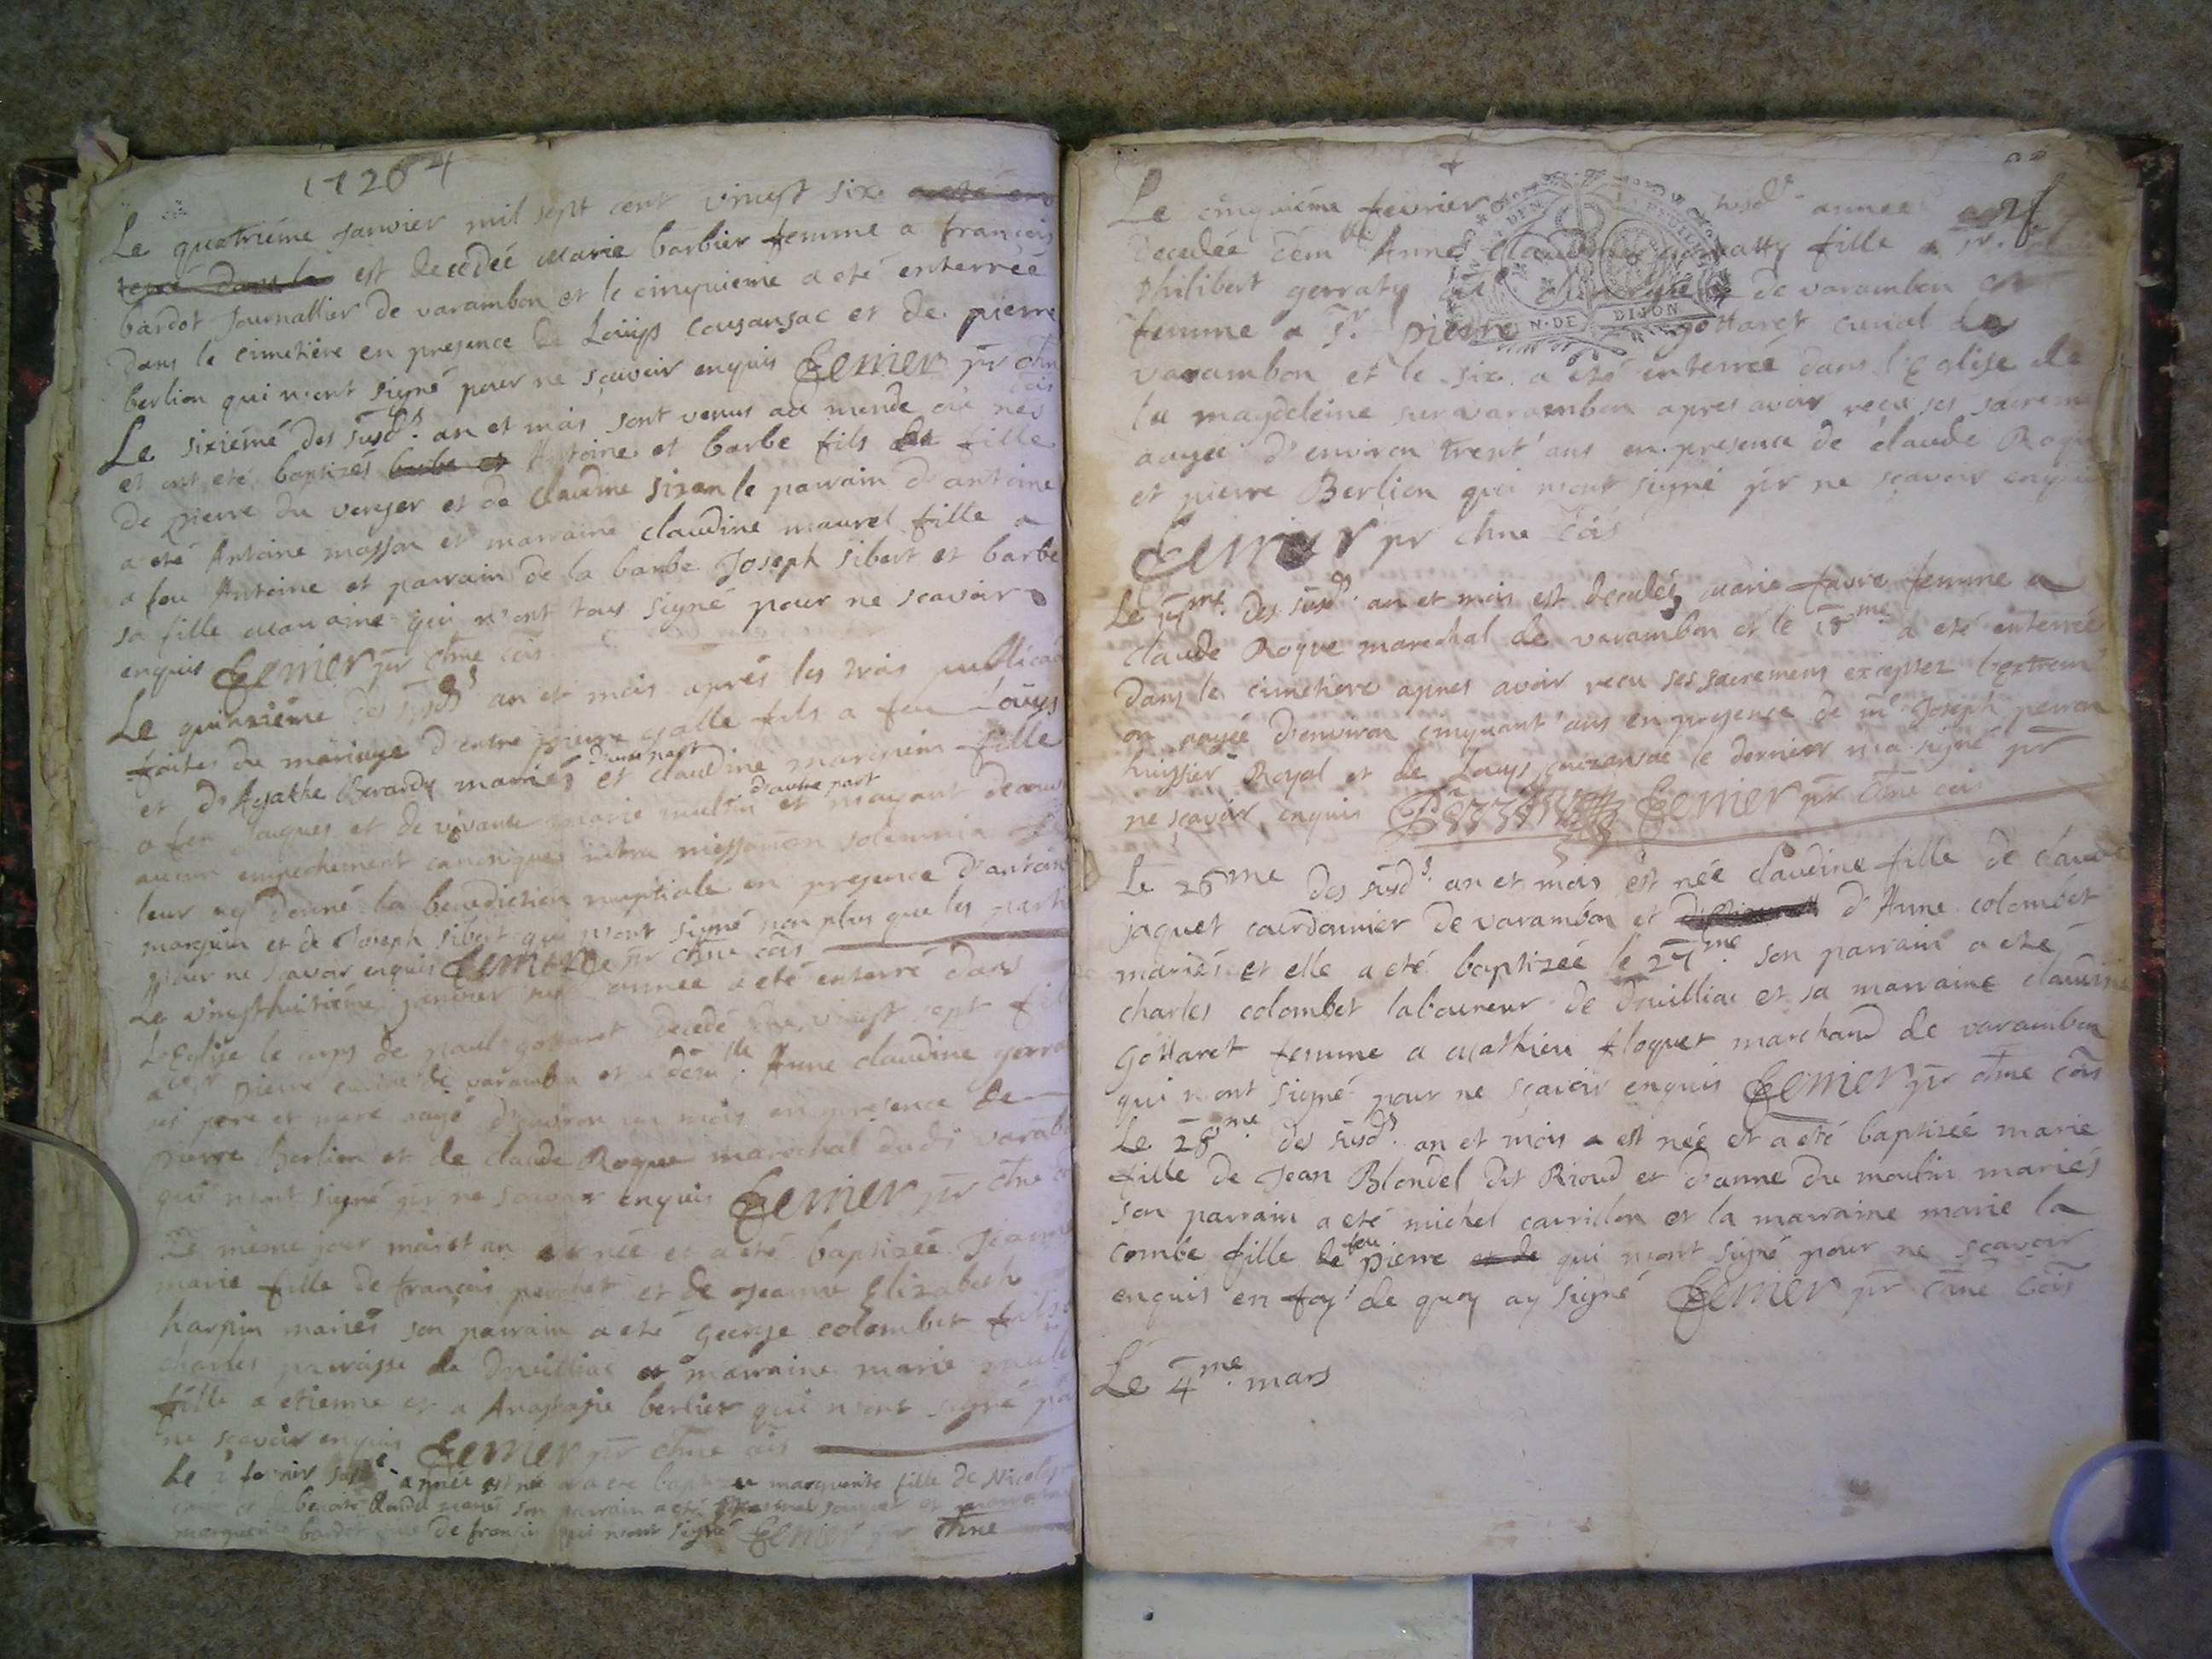 1726
Le quatriéme janvier mil sept cent vingt six
est decedée marie barbier femme a francois
bardot journallier de varambon et le cinquieme a eté enterreé
dans le cimetiére en presence de Loüys cousansac et de pierre
berlion qui n'ont signé pour ne sçavoir enquis Ferrier pr chne
cõis
Le sixiémé des susds. an et mois sont venus au monde
et ont eté baptizés barbe et Antoine et barbe fils et fille
de pierre du verger et de claudine sizan le parrain d'antoine
a eté Antoine masson et marraine claudine maurel fille a
a feu Antoine et parrain de la barbe Joseph sibert et barbe
sa fille maraine qui n'ont tous signé pour ne scavoir
enquis Ferrier pr chne cõis
Le quinziéme des susds an et mois aprés les trois publica
faites du mariage d'entre pierre galle fils a feu Loüys
et d'Agathe Berardy mariés d'une part et claudine marguin fille
a feu jaques et de vivante marie multin d'autre part et n'ayant decouv
aucun empechement canonique intra missarum solemnia
leur ay donné la benediction nuptiale en presence d'antoine
marguin et de Joseph sibert qui n'ont signé non plus que les parti
pour ne scavoir enquis Ferrier pr chne cõis
Le vingthuitiéme janvier annee a eté enterré dans
L'Eglise le corps de paul gottaret decedé le vingt sept fil
a sr pierre curial de varambon et a dem lle. Anne claudine gerra
ses pere et mere aagé d'environ un mois en presence de
pierre Berlion et de claude Roque marechal dudt varamb
qui n'ont signé pr ne scavoir enquis Ferrier pr chne
Le méme jour mois et an est née et a eté baptizée Jeanne
marie fille de françois perchet et de Jeanne Elizabeth
harpin mariés son parrain a eté george colombet fils
charles de Druilliac et marraine marie
fille a etienne et a Anastasie berlier qui n'ont signé
ne scavoir enquis Ferrier pr chne cõis
Le 2 fevrier susde année est née et a eté baptizée marguerite fille de Nicolas
et de benoite mariés son parrain a eté et marraine
marguerite bardot fille de francois qui n'ont signé Ferrier pr chne
Le cinquiéme fevrier susde annee
decedée dem lle. Anne Claudine gerratty fille a Sr.
Philibert gerraty de varambon et
femme a Sr. pierre gottaret curial de
GEN. DE DIJON
varambon et le six a eté enterreé dans l'Eglise de
la magdeleine sur varambon apres avoir reçu ses sacrem
aagée d'environ trent'ans en presence de claude Roque
et pierre Berlion qui n'ont signé pr ne sçavoir enquis
Ferrier pr chne cõis
Le 17me. des susds. an et mois est decedée marie favre femme a
claude Roque marechal de varambon et le 18me a eté enterrée
dans le cimetiere apres avoir recu ses sacremens exceptez l'extrem'
on aagée d'environ cinquant'ans en presence de me Joseph perron
huissier Royal et de Louys couzansac le dernier n'a signé pr
ne sçavoir enquis Perron Ferrier pr chne cõis
Le 26me des susds. an et mois est née claudine fille de claude
jaquet cordonnier de varambon et d'Anne colombet
mariés et elle a eté baptizeé le 27me son parrain a eté
charles colombet laboureur de Druilliac et sa marraine claudine
Gottaret femme a Mathieu floquet marchand de varambon
qui n'ont signé pour ne sçavoir enquis Ferrier pr chne cõis
Le 28me. des susds. an et mois est née et a eté baptizeé marie
fille de Jean Blondel dit Rioud et d'anne du moulin mariés
son parrain a eté michel carrillon et la marraine marie la
combe fille de feu pierre et de qui n'ont signé pour ne scavoir
enquis en foy de quoy ay signé Ferrier pr chne cõis
Le 4me. mars